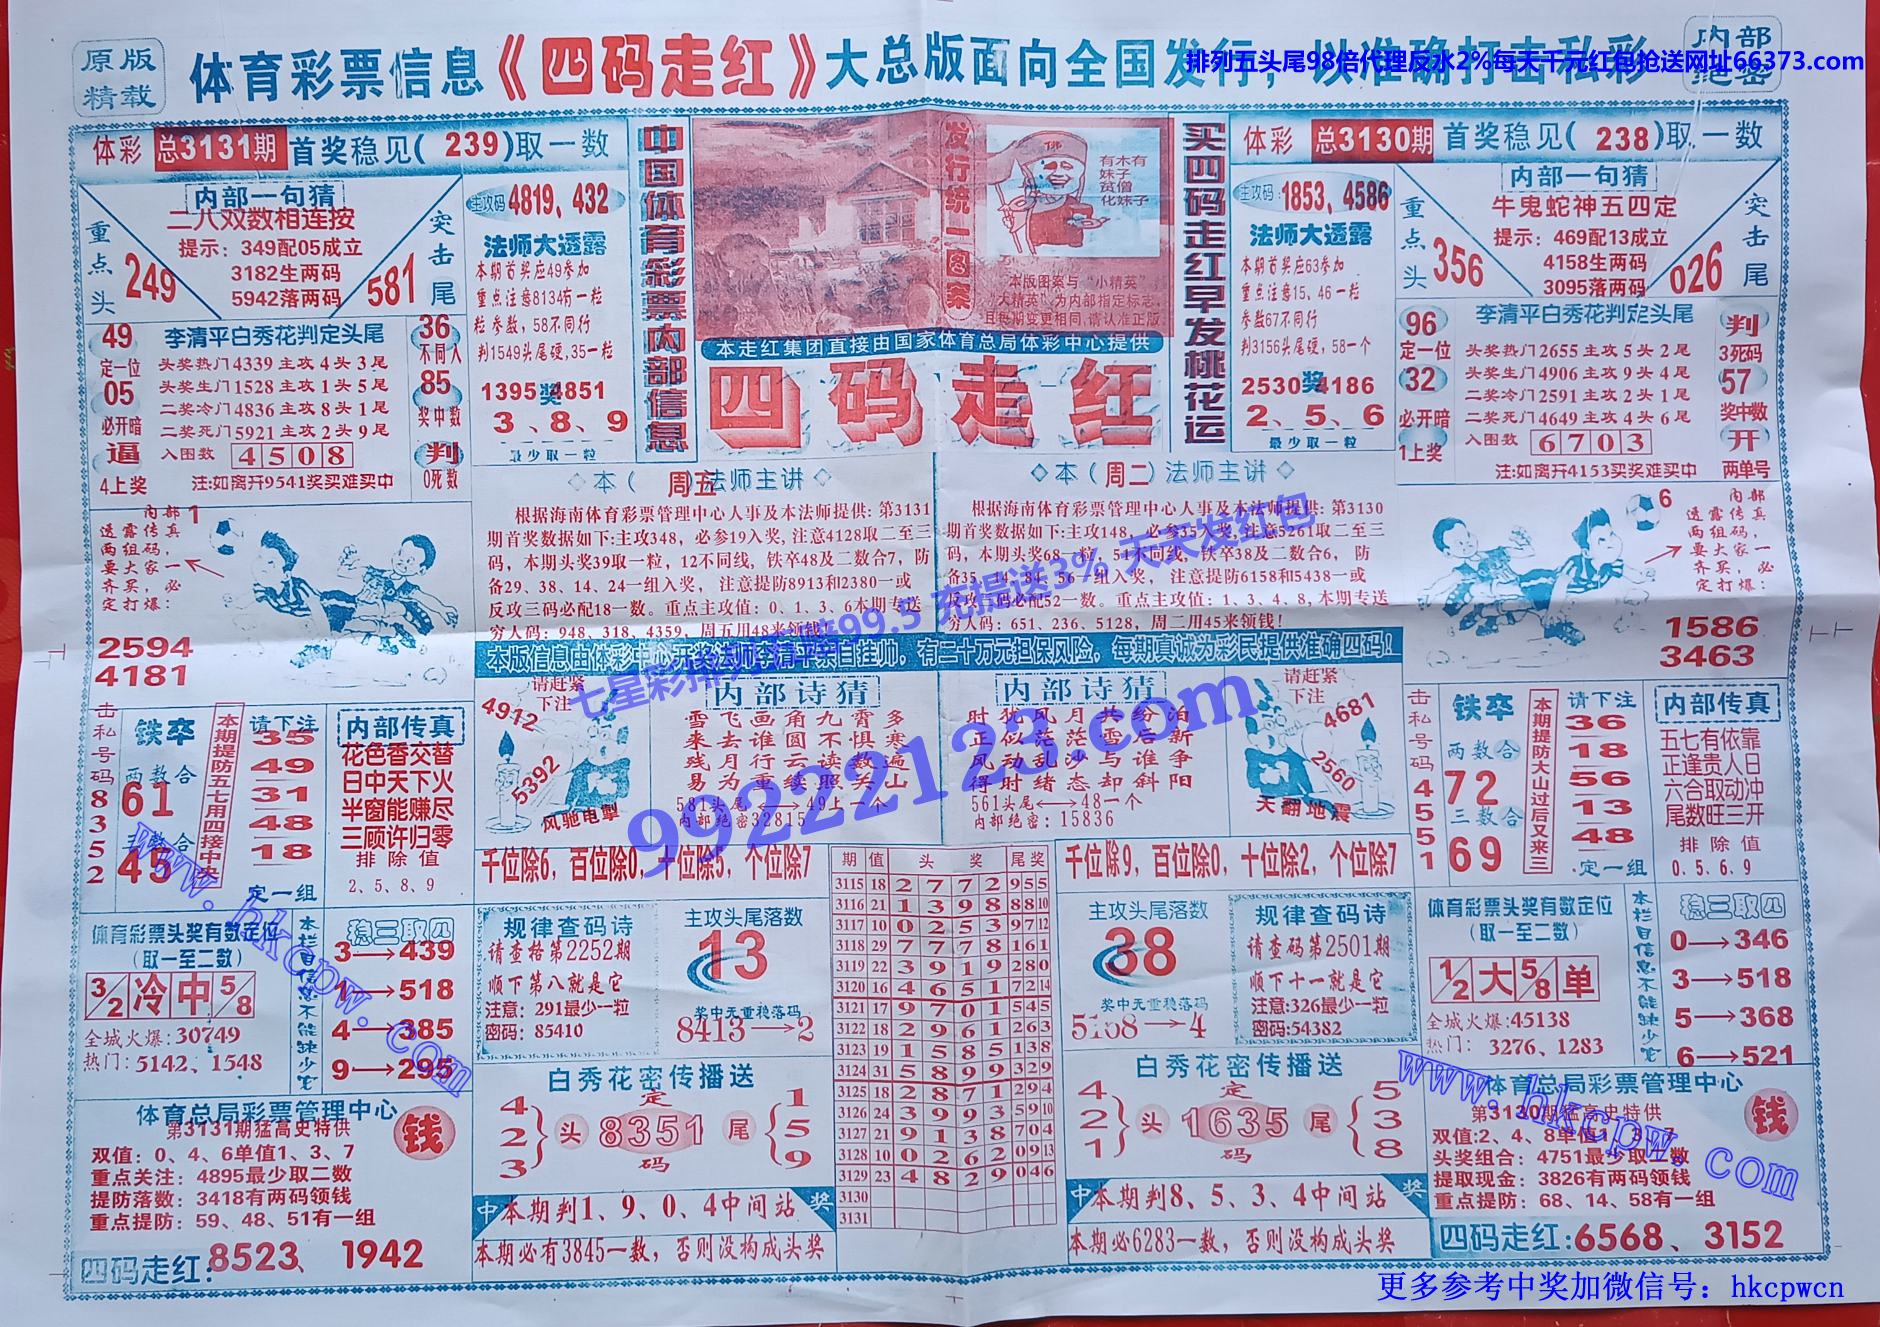 原版
精载
体育彩票信息《四码走红》大总版面向全国发行，以准确打击私彩
内部
绝密
排列五头尾98倍代理反水2%每天千元红包抢送网址66373.com
体彩 总3131期 首奖稳见(239)取一数
内部一句猜
二八双数相连按
提示：349配05成立
3182生两码
5942落两码
重点头
249
突击尾
581
主攻码:4819、432
法师大透露
本期首奖应49参加
重点注意8134有一粒
粒参数，58不同行
判1549头尾硬,35一粒
1395奖4851
3、8、9
最少取一粒
49
定一位
05
必开暗
逼
4上奖
李清平白秀花判定头尾
头奖热门4339主攻4头3尾
头奖生门1528主攻1头5尾
二奖冷门4836主攻8头1尾
二奖死门5921主攻2头9尾
入图数 4508
注:如离开9541奖买难买中
36
不同入
85
奖中数
判
0死数
中国体育彩票内部信息
发行统一图案
佛
有木有
妹子
贫僧
化妹子
本版图案与“小精英”
“大精英”为内部指定标志，
且每期变更相同,请认准正版
本走红集团直接由国家体育总局体彩中心提供
四码走红
买四码走红早发桃花运
体彩 总3130期 首奖稳见(238)取一数
主攻码:1853、4586
法师大透露
本期首奖应63参加
重点注意15、46一粒
参数67不同行
判3156头尾硬，58一个
2530奖4186
2、5、6
最少取一粒
内部一句猜
牛鬼蛇神五四定
提示：469配13成立
4158生两码
3095落两码
重点头
356
突击尾
026
96
定一位
32
必开暗
1上奖
李清平白秀花判定头尾
头奖热门2655主攻5头2尾
头奖生门4906主攻9头4尾
二奖冷门2591主攻2头1尾
二奖死门4649主攻4头6尾
入图数 6703
注:如离开4153买奖难买中
判
3死码
57
奖中数
开
两单号
内部 1
透露传真
两组码，
要大家一
齐买，必
定打爆：
2594
4181
◇本(周五法师主讲◇
根据海南体育彩票管理中心人事及本法师提供：第3131
期首奖数据如下:主攻348，必参19入奖,注意4128取二至三
码，本期头奖39取一粒，12不同线，铁卒48及二数合7，防
备29、38、14、24一组入奖，注意提防8913和2380一或
反攻三码必配18一数。重点主攻值：0、1、3、6本期专送
穷人码：948、318、4359，周五用48来领钱!
◇本(周二)法师主讲◇
根据海南体育彩票管理中心人事及本法师提供：第3130
期首奖数据如下:主攻148，必参35入奖,注意5261取二至三
码,本期头奖68一粒，51不同线，铁卒38及二数合6，防
备35、14、84、56一组入奖，注意提防6158和5438一或
反攻三码必配52一数。重点主攻值：1、3、4、8,本期专送
穷人码：651、236、5128，周二用45来领钱!
6 内部
透露传真
两组码，
要大家一
齐买，必
定打爆：
1586
3463
本版信息由体彩中心开奖法师李清平亲自挂帅，有二十万元担保风险，每期真诚为彩民提供准确四码！
七星彩排列五赔99.5 充提送3% 天天发红包
99222123.com
击私号码83352
铁卒
两数合
61
三数合
45
本期提防五七用四接中央
请下注
35
49
31
48
18
定一组
内部传真
花色香交替
日中天下火
半窗能赚尽
三顾许归零
排除值
2、5、8、9
请赶紧
下注
4912
5392
风驰电掣
内部诗猜
雪飞画角九霄多
来去谁圆不惧寒
残月行云读数遍
易为重续照关山
581头尾⟷49上一个
内部绝密32815
内部诗猜
时犹风月共纷泊
正似茫茫雪后新
风动乱沙与谁争
得时绪态却斜阳
561头尾⟷48一个
内部绝密：15836
请赶紧
下注
4681
2560
天翻地震
击私号码4551
铁卒
两数合
72
三数合
69
本期提防大山过后又来三
请下注
36
18
56
13
48
定一组
内部传真
五七有依靠
正逢贵人日
六合取动冲
尾数旺三开
排除值
0、5、6、9
千位除6，百位除0，十位除5，个位除7
千位除9，百位除0，十位除2，个位除7
体育彩票头奖有数定位
(取一至二数)
3/2 冷 中 5/8
全城火爆:30749
热门：5142、1548
本栏目信息不能缺少它
稳三取四
3→439
1→518
4→385
9→295
规律查码诗
请查格第2252期
顺下第八就是它
注意：291最少一粒
密码：85410
主攻头尾落数
13
奖中无重稳落码
8413→2
期 值 头奖 尾奖
3115 18 2 7 7 2 9 5 5
3116 21 1 3 9 8 8 8 10
3117 10 0 2 5 3 9 7 12
3118 29 7 7 7 8 1 6 1
3119 22 3 9 1 9 2 8 0
3120 16 4 6 5 1 7 2 14
3121 17 9 7 0 1 5 4 5
3122 18 2 9 6 1 2 6 3
3123 19 1 5 8 5 1 3 8
3124 31 5 8 9 9 3 2 9
3125 18 2 8 7 1 2 9 4
3126 24 3 9 9 3 5 9 10
3127 21 9 1 3 8 7 0 4
3128 10 0 2 6 2 0 9 13
3129 23 4 8 2 9 0 4 6
3130
3131
主攻头尾落数
38
奖中无重稳落码
5168→4
规律查码诗
请查码第2501期
顺下十一就是它
注意:326最少一粒
密码:54382
体育彩票头奖有数定位
(取一至二数)
1/2 大 5/8 单
全城火爆:45138
热门： 3276、1283
本栏目信息不能缺少它
稳三取四
0→346
3→518
5→368
6→521
体育总局彩票管理中心
第3131期猛高史特供
双值：0、4、6单值1、3、7
重点关注：4895最少取二数
提防落数：3418有两码领钱
重点提防：59、48、51有一组
钱
四码走红:8523、1942
白秀花密传播送
4
2
3
头
定
8351
码
尾
1
5
9
中 本期判1、9、0、4中间站 奖
本期必有3845一数，否则没构成头奖
白秀花密传播送
4
2
1
头
定
1635
码
尾
5
3
8
中 本期判8、5、3、4中间站 奖
本期必6283一数，否则没构成头奖
体育总局彩票管理中心
第3130期猛高史特供
双值:2、4、8单值1、3、7
头奖组合：4751最少取二数
提取现金：3826有两码领钱
重点提防：68、14、58有一组
钱
四码走红:6568、3152
www.hkcpw.com
www.hkcpw.com
更多参考中奖加微信号：hkcpwcn